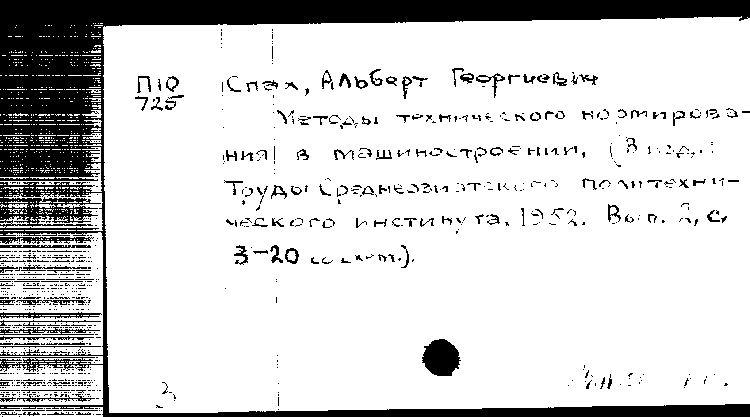 П10
725
Спах, Альберт Георгиевич
Методы технического нормирова-
ния в машиностроении, (В изд.:
Труды Среднеазиатского политехни-
ческого института. 1952. Вып. 2, с.
3-20 со схем.).
3